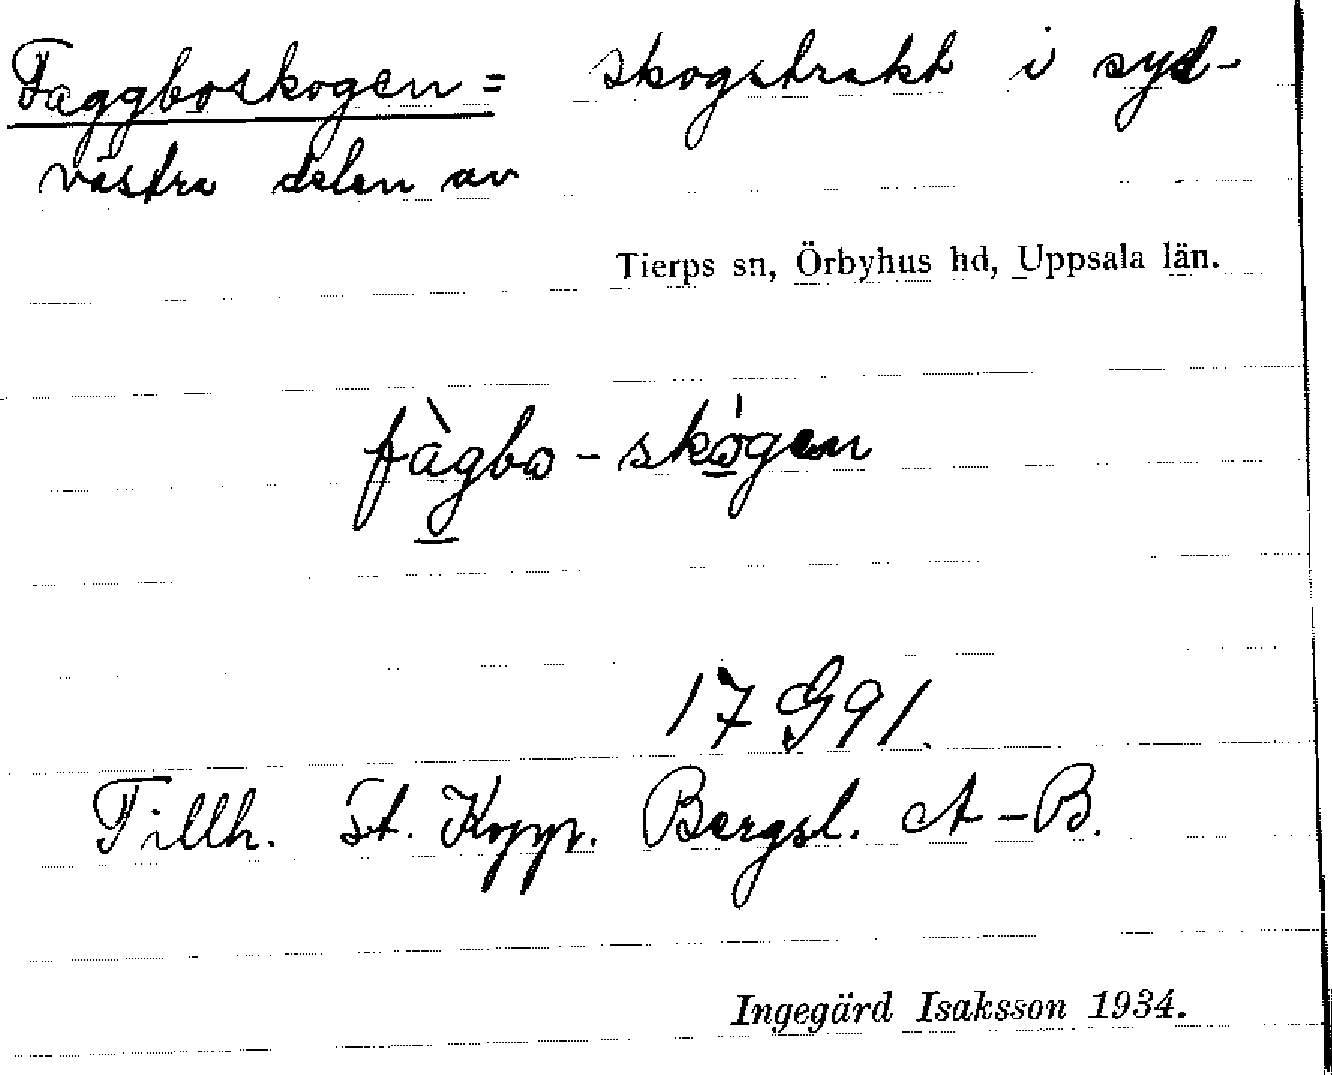 Faggboskogen = skogstrakt i syd-
västra delen av
Tierps sn, Örbyhus hd, Uppsala län.
fàgbo - skógen
17 G 91.
Tillh. St. Kopp. Bergsl. A-B.
Ingegärd Isaksson 1934.